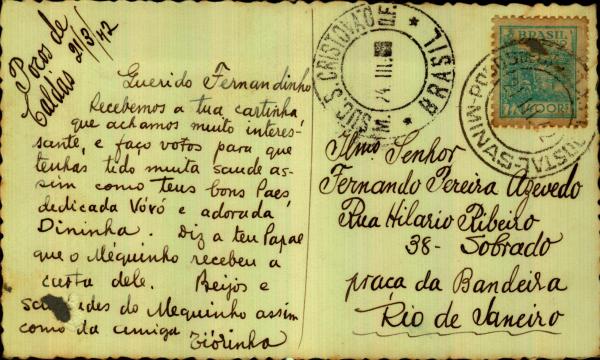 Poços de
Caldas 21/3/42
Querido Fernandinho
Recebemos a tua cartinha
que achamos muito interes-
sante, e faço votos para que
tenhas tido muita saude as-
sim como teus bons Paes,
dedicada Vóvó e adorada
Dininha. Diz a teu Papae
que o Méquinho recebeu a
carta dele. Beijos e
saudades do Mequinho assim
como da amiga
SUC. S. CRISTOVÃO D.F.
24 III
BRASIL
BRASIL
MINAS
Ilmo Senhor
Fernando Pereira Azevedo
Rua Hilario Ribeiro
38- Sobrado
praça da Bandeira
Rio de Janeiro